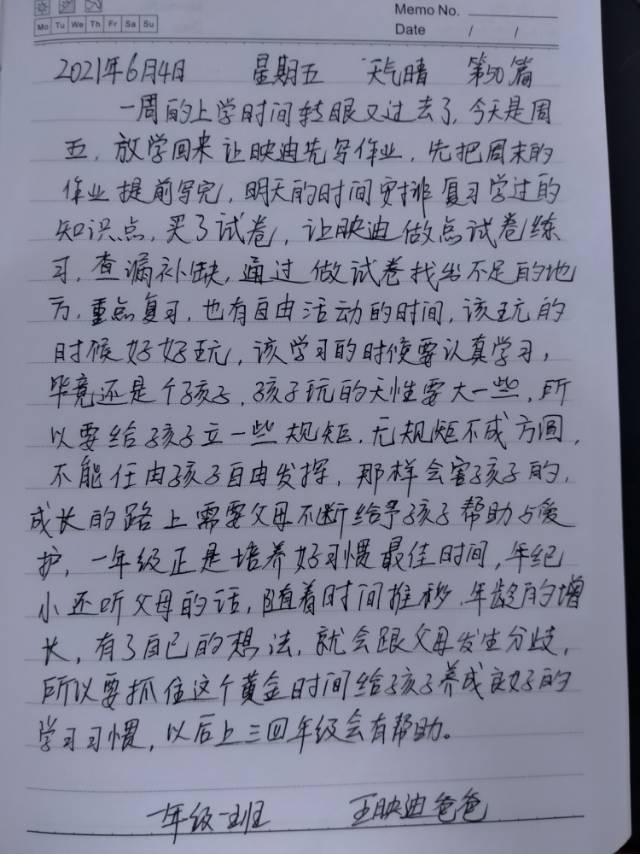 Memo No.
Mo Tu We Th Fr Sa Su
Date / /
2021年6月4日 星期五 天气晴 第50篇
一周的上学时间转眼又过去了,今天是周
五,放学回来让映迪先写作业,先把周末的
作业提前写完,明天的时间安排复习学过的
知识点,买了试卷,让映迪做点试卷练
习,查漏补缺,通过做试卷找出不足的地
方,重点复习,也有自由活动的时间,该玩的
时候好好玩,该学习的时候要认真学习,
毕竟还是个孩子,孩子玩的天性要大一些,所
以要给孩子立一些规矩,无规矩不成方圆,
不能任由孩子自由发挥,那样会害孩子的,
成长的路上需要父母不断给予孩子帮助与爱
护,一年级正是培养好习惯最佳时间,年纪
小还听父母的话,随着时间推移,年龄的增
长,有了自己的想法,就会跟父母发生分歧,
所以要抓住这个黄金时间给孩子养成良好的
学习习惯,以后上三四年级会有帮助。
一年级一班 王映迪爸爸